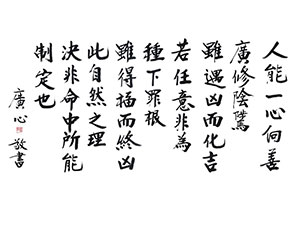 人能一心向善
廣修陰騭
雖遇凶而化吉
若任意非為
種下罪根
雖得福而終凶
此自然之理
決非命中所能
制定也
廣心敬書